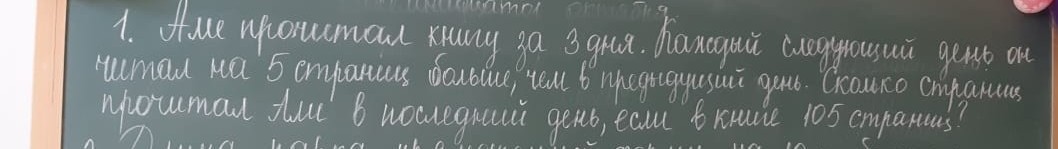 1. Али прочитал книгу за 3 дня. Каждый следующий день он
читал на 5 страниц больше, чем в предыдущий день. Сколько страниц
прочитал Али в последний день, если в книге 105 страниц?